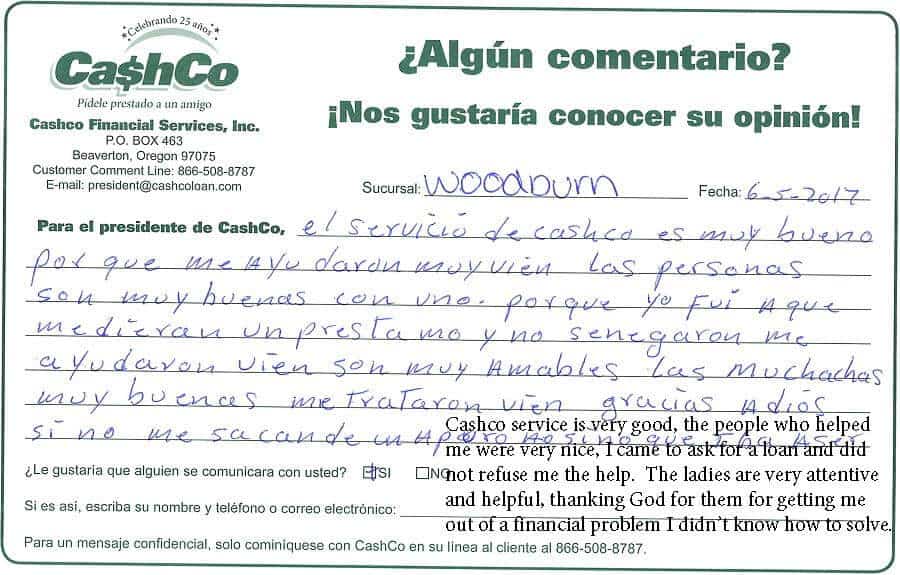 Celebrando 25 años
Ca$hCo
Pídele prestado a un amigo
Cashco Financial Services, Inc.
P.O. BOX 463
Beaverton, Oregon 97075
Customer Comment Line: 866-508-8787
E-mail: president@cashcoloan.com
¿Algún comentario?
¡Nos gustaría conocer su opinión!
Sucursal: Woodburn Fecha: 6-5-2017
Para el presidente de CashCo, el servicio de cashco es muy bueno
por que me Ayudaron muy vien las personas
son muy buenas con uno. porque yo fui A que
me dieran un prestamo y no senegaron me
ayudaron vien son muy Amables las muchachas
muy buenas me trataron vien gracias A diós
si no me sacan de un Apuro
¿Le gustaria que alguien se comunicara con usted? SI NO
Si es así, escriba su nombre y teléfono o correo electrónico:
Para un mensaje confidencial, solo cominíquese con CashCo en su línea al cliente al 866-508-8787.
Cashco service is very good, the people who helped
me were very nice, I came to ask for a loan and did
not refuse me the help. The ladies are very attentive
and helpful, thanking God for them for getting me
out of a financial problem I didn't know how to solve.